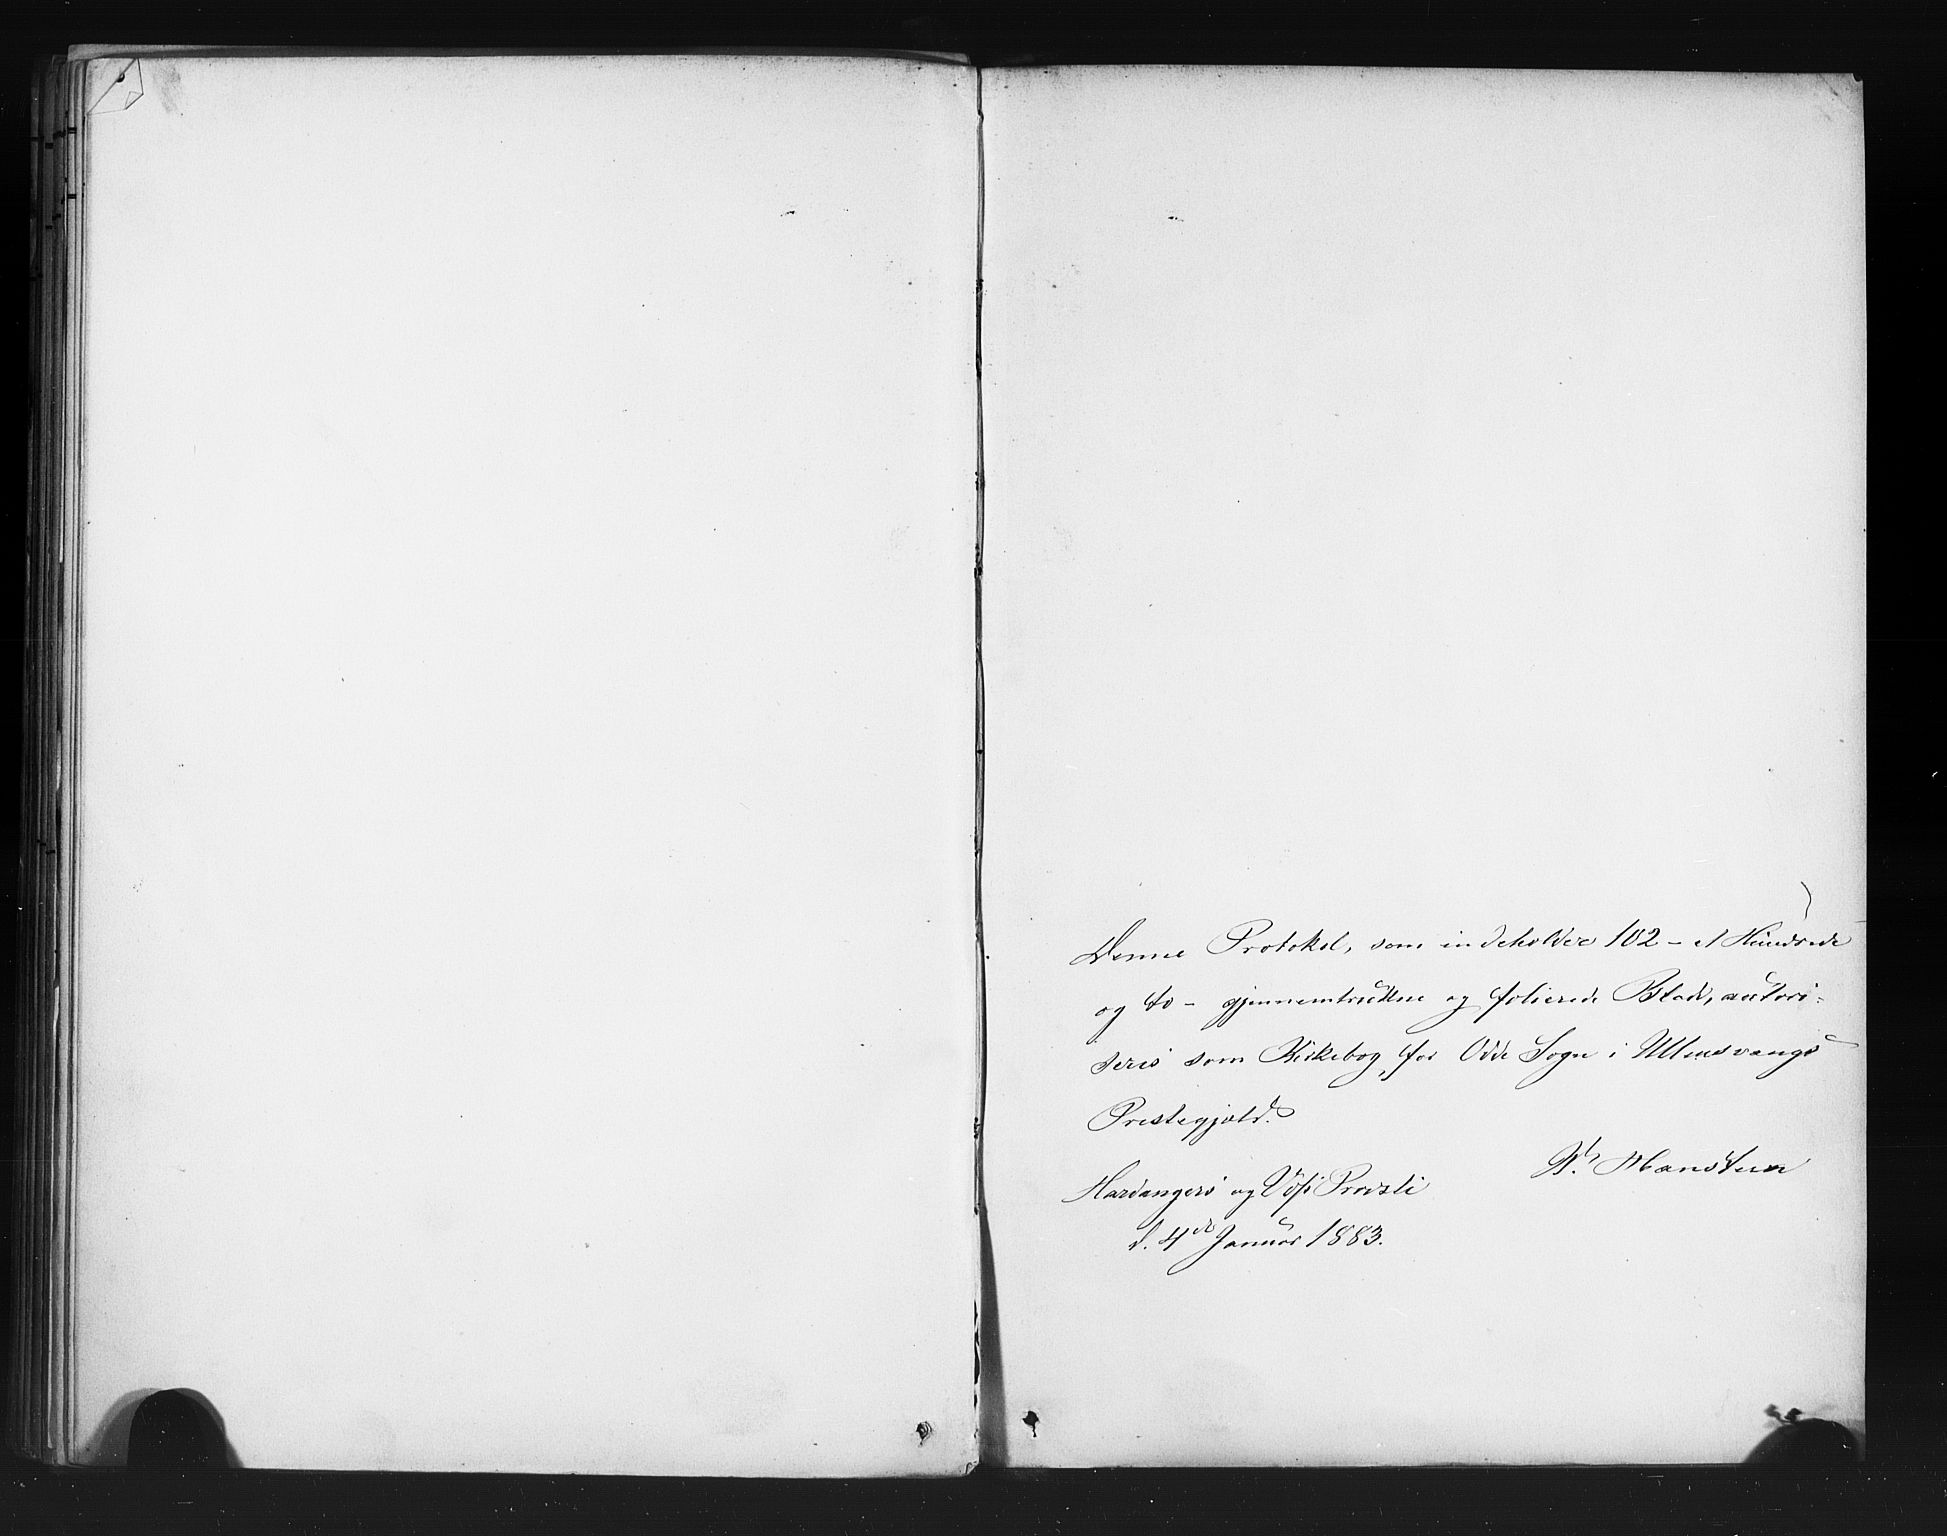 Denne Protokol, som indeholder 102 - et Hundrede
og to - gjennemtrukne og folierede Blade, autori-
seres som Kirkebog for Odde Sogn i Ullensvangs
Prestegjæld.
Hardangers og Vos's Provsti
d. 4de Januar 1883.